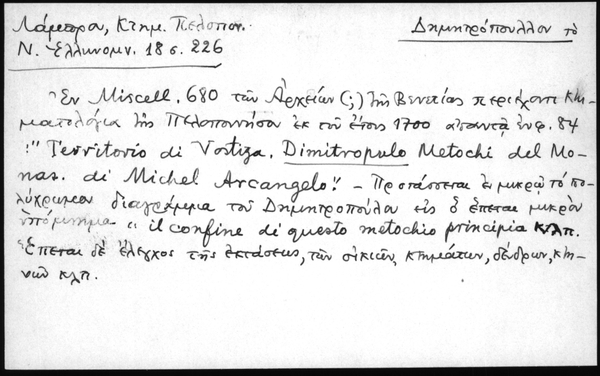 Λάμπρου, Κτημ. Πελοπον. Δημητρόπουλλον τὸ
Ν. Ἑλληνομν. 18 σ. 226
Ἐν Miscell. 680 τῶν Ἀρχείων (;) τῆς Βενετίας περιέχοντι κτη-
ματολόγια τῆς Πελοποννήσου ἐκ τοῦ ἔτους 1700 ἀπαντᾷ ἐν φ. 84
:" Territorio di Vostiza. Dimitropulo Metochi del Mo-
nas. di Michel Arcangelo". – Προτάσσεται ἐν μικρῷ τὸ πο-
λύχρωμον διάγραμμα τοῦ Δημητροπούλου εἰς ὃ ἕπεται μικρὸν
ὑπόμνημα " il confine di questo metochio principia κλπ.
Ἕπεται δὲ ἔλεγχος τῆς ἐκτάσεως, τῶν οἰκιῶν, κτημάτων, δένδρων, κτη-
νῶν κλπ.